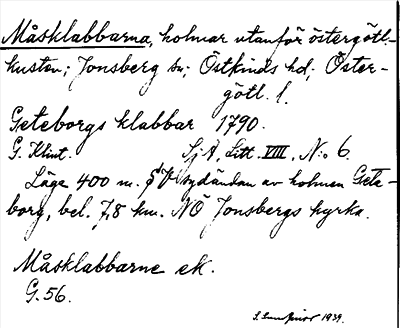 Måsklabbarna, holmar utanför östergötl.-
kusten; Jonsberg sn; Östkinds hd; Öster-
götl. l.
Geteborgs klabbar 1790.
G. Klint. SjA, Litt. VIII, N:o 6.
Läge 400 m. SV sydändan av holmen Geta-
borg, bel. 7,8 km. NÖ Jonsbergs kyrka.
Måsklabbarne ek.
G. 56.
1939.